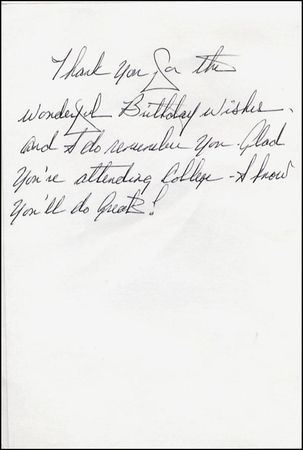 Thank You for the
wonderful Birthday wishes.
and I do remember You - Glad
You're attending College - I know
You'll do Great!